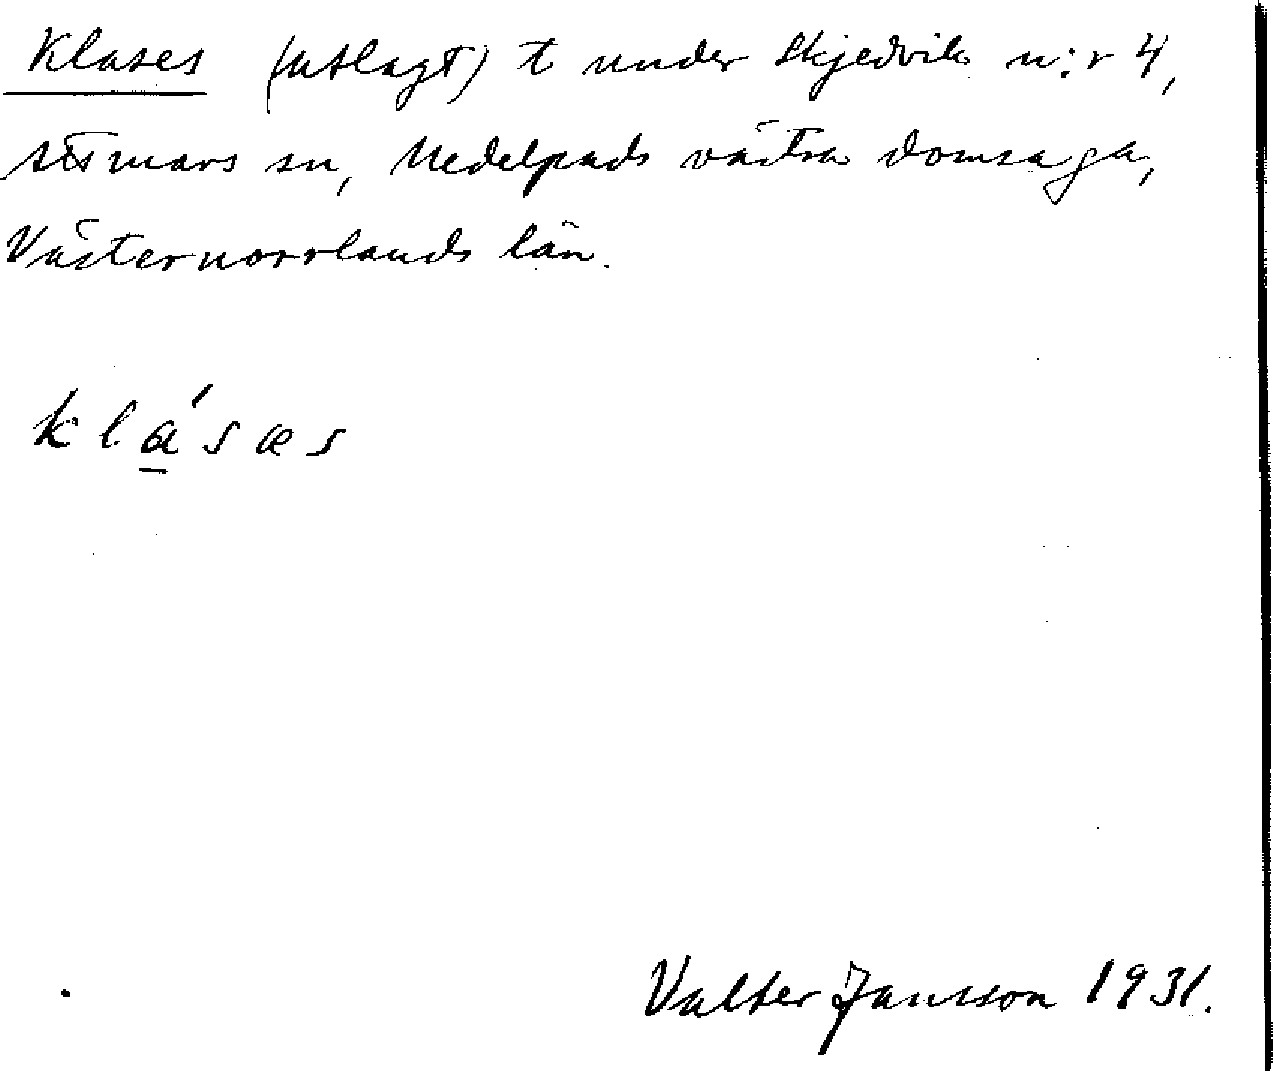 Klases (utlagt) t under Skjedvik n:r 4,
Attmars sn, Medelpads västra domsaga,
Västernorrlands län.
klá̱sæs
Valter Jansson 1931.